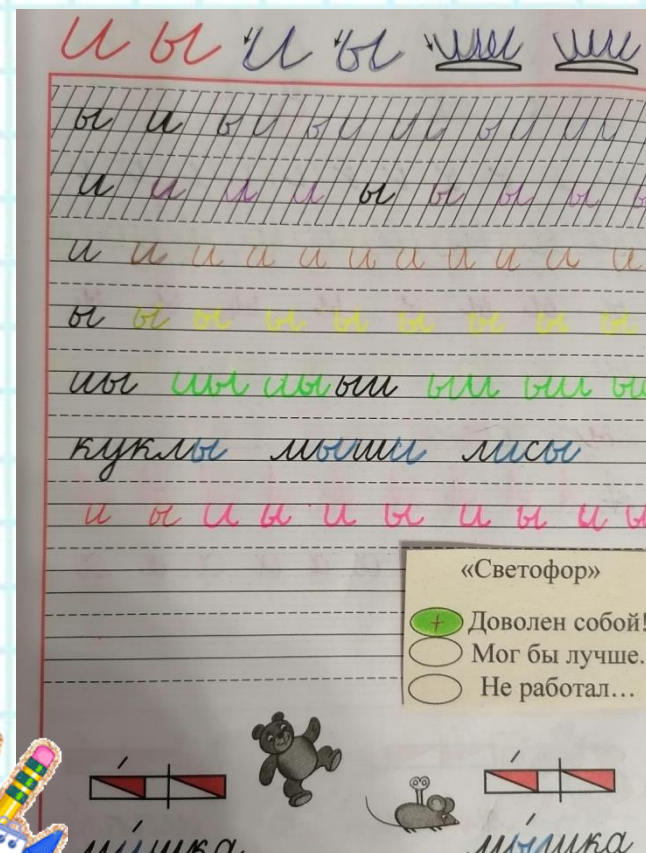 и ы и ы иы ши
ы и ы и ы и и и ы и и и
и и и и ы ы ы ы ы
и и и и и и и и и и и
ы ы ы ы ы ы ы ы ы
иы иы иы ыи ыи ыи ыи
куклы мыши лисы
и ы и ы и ы и ы и ы
«Светофор»
+ Доволен собой!
Мог бы лучше.
Не работал...
мишка мышка